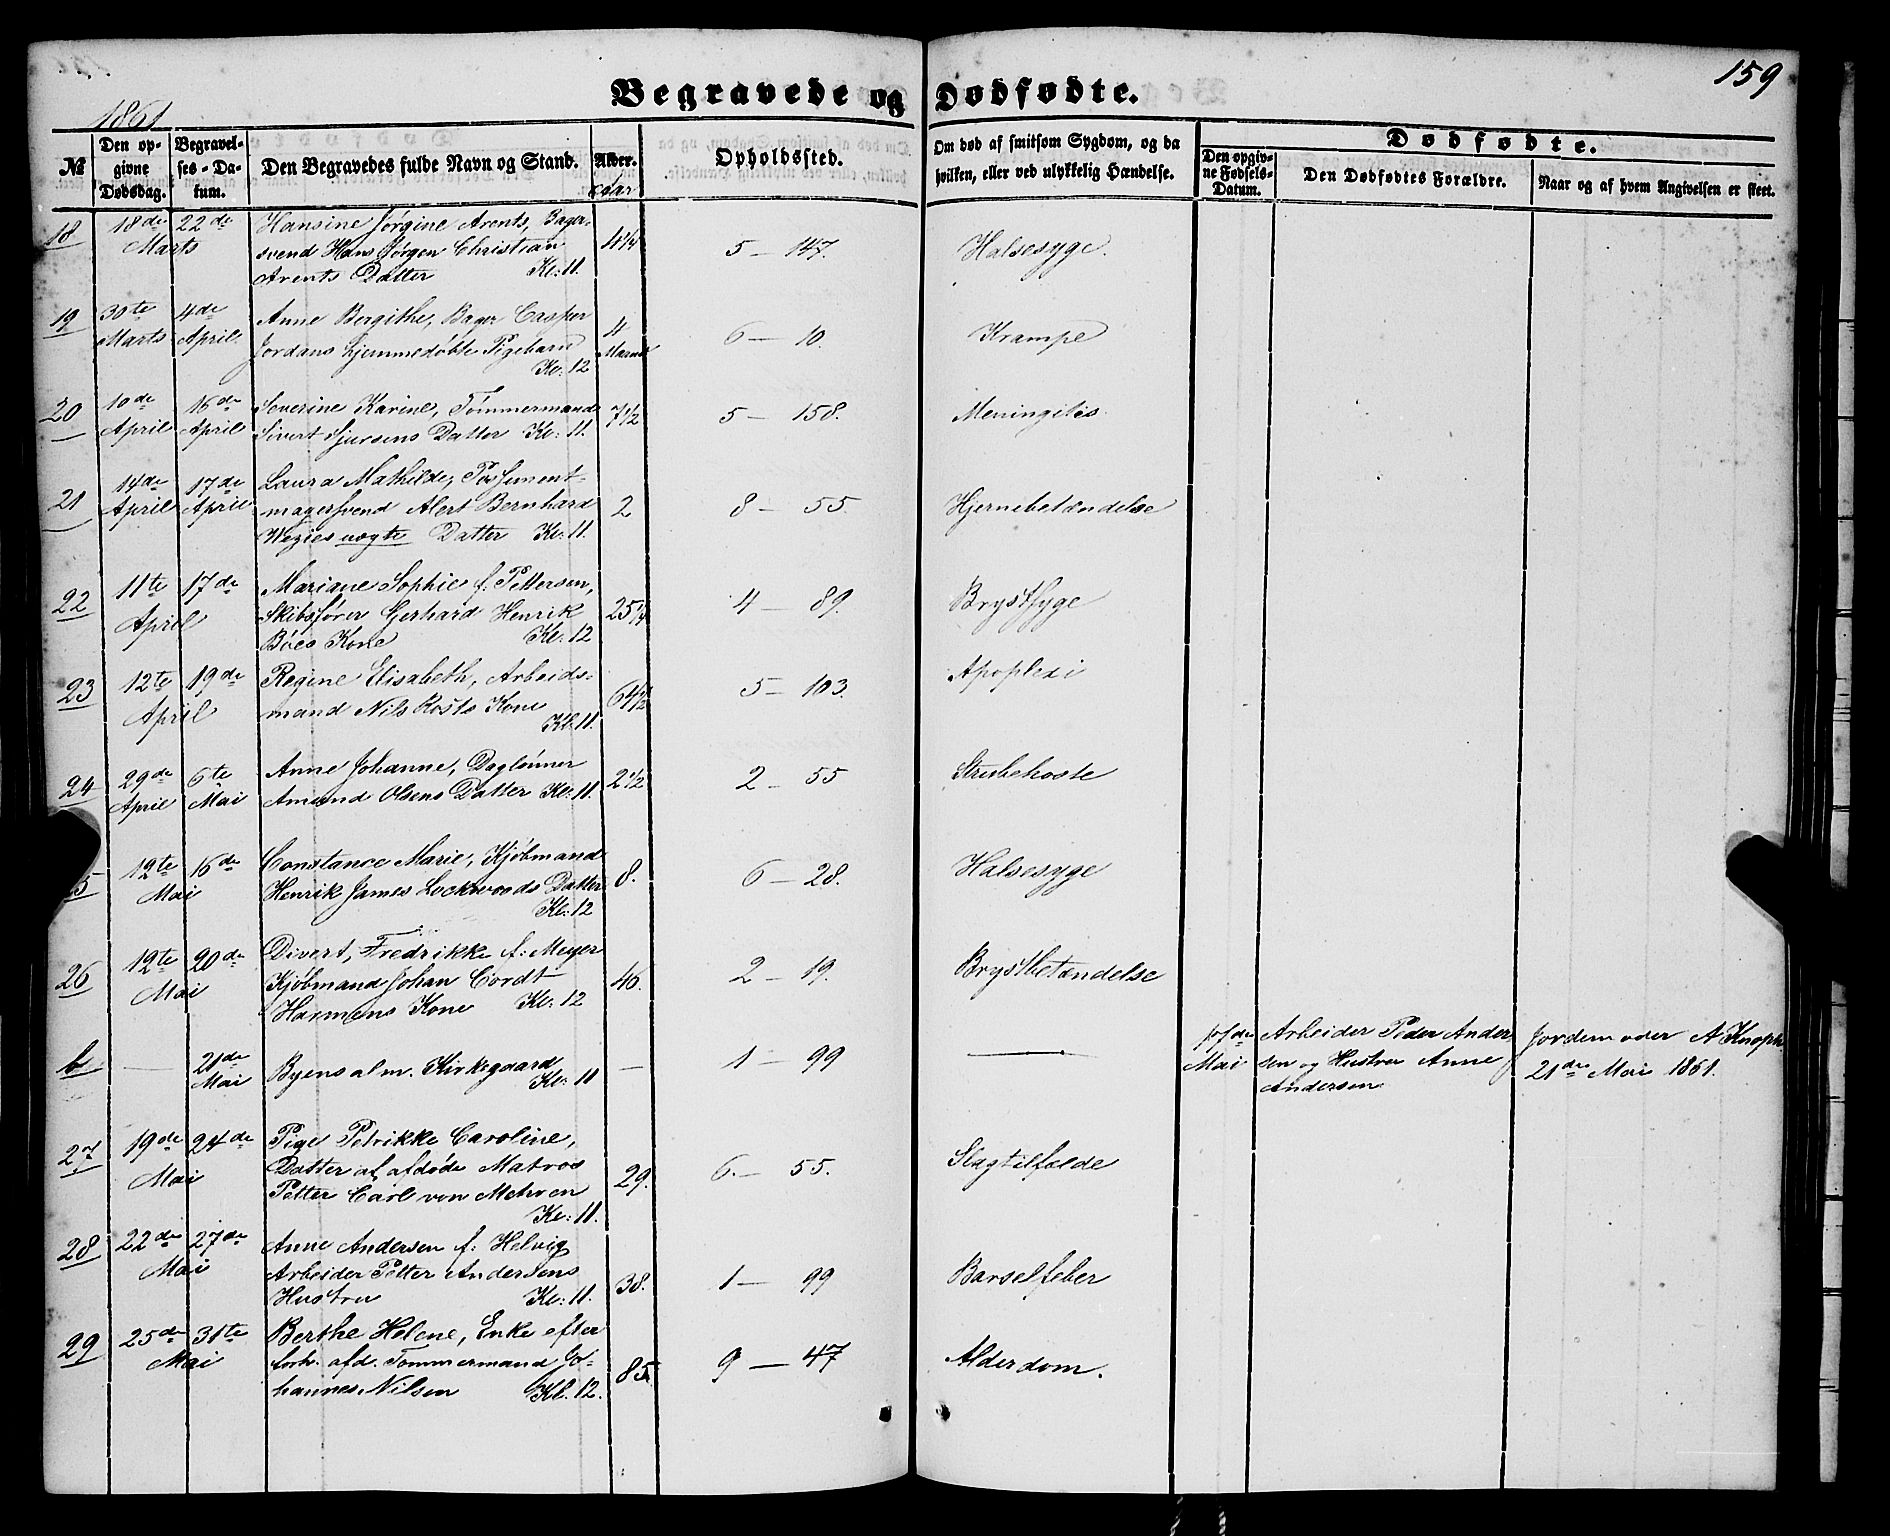 159
Begravede og Dødfødte.
1861
№
Den opgivne Dødsdag.
Begravelses-Datum.
Den Begravedes fulde Navn og Stand.
Alder.
Aar
Opholdssted.
Om død af smitsom Sygdom, og da hvilken, eller ved ulykkelig Hændelse.
Dødfødte.
Den opgivne Fødsels-Datum.
Den Dødfødtes Forældre.
Naar og af hvem Angivelsen er skeet.
18 18de 22de Hansine Jørgine Arents, Bager-
Marts svend Hans Jørgen Christian 4 1/4 5 - 147. Halsesyge.
Arents Datter Kl: 11.
19 30te 4de Anne Bergithe, Bager Casper 4
Marts April Jordans hjemmedøbte Pigebarn Maaned 6 - 10. Krampe
Kl: 12
20 10de 16de Severine Karine, Tømmermand 7 1/2 5 - 158. Meningitis
April April Sivert Sjursens Datter Kl: 11.
21 14de 17de Laura Mathilde, Possement-
April April magersvend Alert Bernhard 2 8 - 55. Hjernebetændelse
uægte Datter Kl: 11.
22 11te 17de Mariane Sophie f: Pettersen,
April Skibsfører Gerhard Henrik 25 1/4 4 - 89. Brystsyge
Bøes Kone Kl: 12
23 12te 19de Regine Elisabeth, Arbeids-
April mand Nils Rosts Kone 64 1/2 5 - 103. Apoplexi
Kl: 11.
24 29de 6te Anne Johanne, Daglønner
April Mai Amund Olsens Datter Kl: 11. 2 1/2 2 - 55 Strubehoste
5 12te 16de Constance Marie, Kjøbmand
Mai Henrik James Lockwoods Datter 8. 6 - 28. Halsesyge
Kl: 12
26 12te 20de Divert, Fredrikke f: Meyer
Mai Kjøbmand Johan Cordt 46. 2 - 19. Brystbetændelse
Harmens Kone Kl: 12
b — 21de Mai Byens alm. Kirkegaard Kl: 11 — 1 - 99 —
Mai Arbeider Peder Ander-
sen og Hustru Anne
Andersen
Jordemoder A Knoph
21de Mai 1861.
27 19de 24de Pige Petrikke Caroline,
Mai Datter af afdøde Matros 29. 6. - 55. Slagtilfælde
Petter Carl von Mehren
Kl: 11.
28 22de 27de Anne Andersen f: Helvig
Mai Arbeider Petter Andersens 38. 1 - 99 Barselfeber
Hustru Kl: 11.
29 25de 31te Berthe Helene, Enke efter
Mai forh. afd. Tømmermand Jo- 85. 9 - 47 Alderdom.
hannes Nilsen Kl. 12.